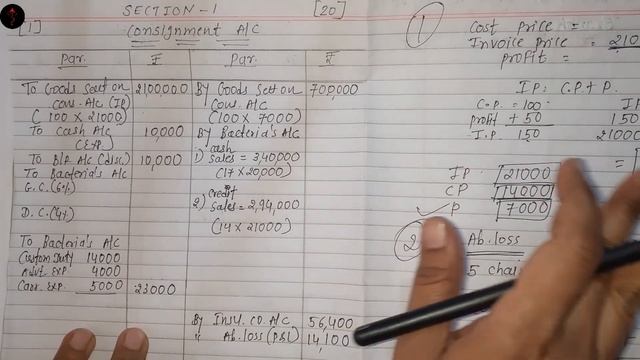 SECTION-1 [20]
[1] Consignment A/C
Par. ₹ Par. ₹
To Goods sent on 2100,000 By Goods sent on 700,000
Cons. A/c (IP) Cons. A/c
(100 x 21000) (100 x 7000)
To Cash A/c 10,000 By Bacteria's A/c
(EXP) cash
To B/R A/c (disc) 10,000 1) Sales = 3,40,000
To Bacteria's A/c (17 x 20,000)
G.C. (6%) Credit
2) Sales = 2,94,000
D.C. (4%) (14 x 21000)
To Bacteria's A/c
Custom Duty 14000
Advt. EXP 4000
Carr. EXP. 5000 23000
By Insu. CO. A/c 56,400
" Ab. loss (P&L) 14,100
1 Cost price =
Invoice price = 210
Profit =
IP = C.P + P.
C.P. = 100 IP
profit + 50 150
I.P. 150 21000
=
IP 21000
CP 14000
P 7000
2 Ab. loss
5 chai